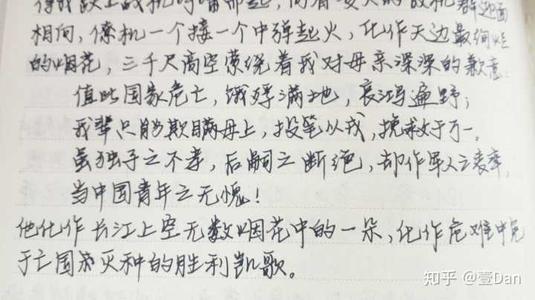 得我跃上战机呼啸而起,向着
相向,僚机一个接一个中弹起火,化作天边最绚烂
的烟花,三千尺高空萦绕着我对母亲深深的歉意。
值此国家危亡,饿殍满地,哀鸿遍野,
我辈只能欺瞒母上,投笔以戎,挽救于万一。
虽独子之不孝,后嗣之断绝,却作军人之表率,
当中国青年之无愧!
他化作长江上空无数烟花中的一朵,化作危难中免
于亡国灭种的胜利凯歌。
知乎 @壹Dan